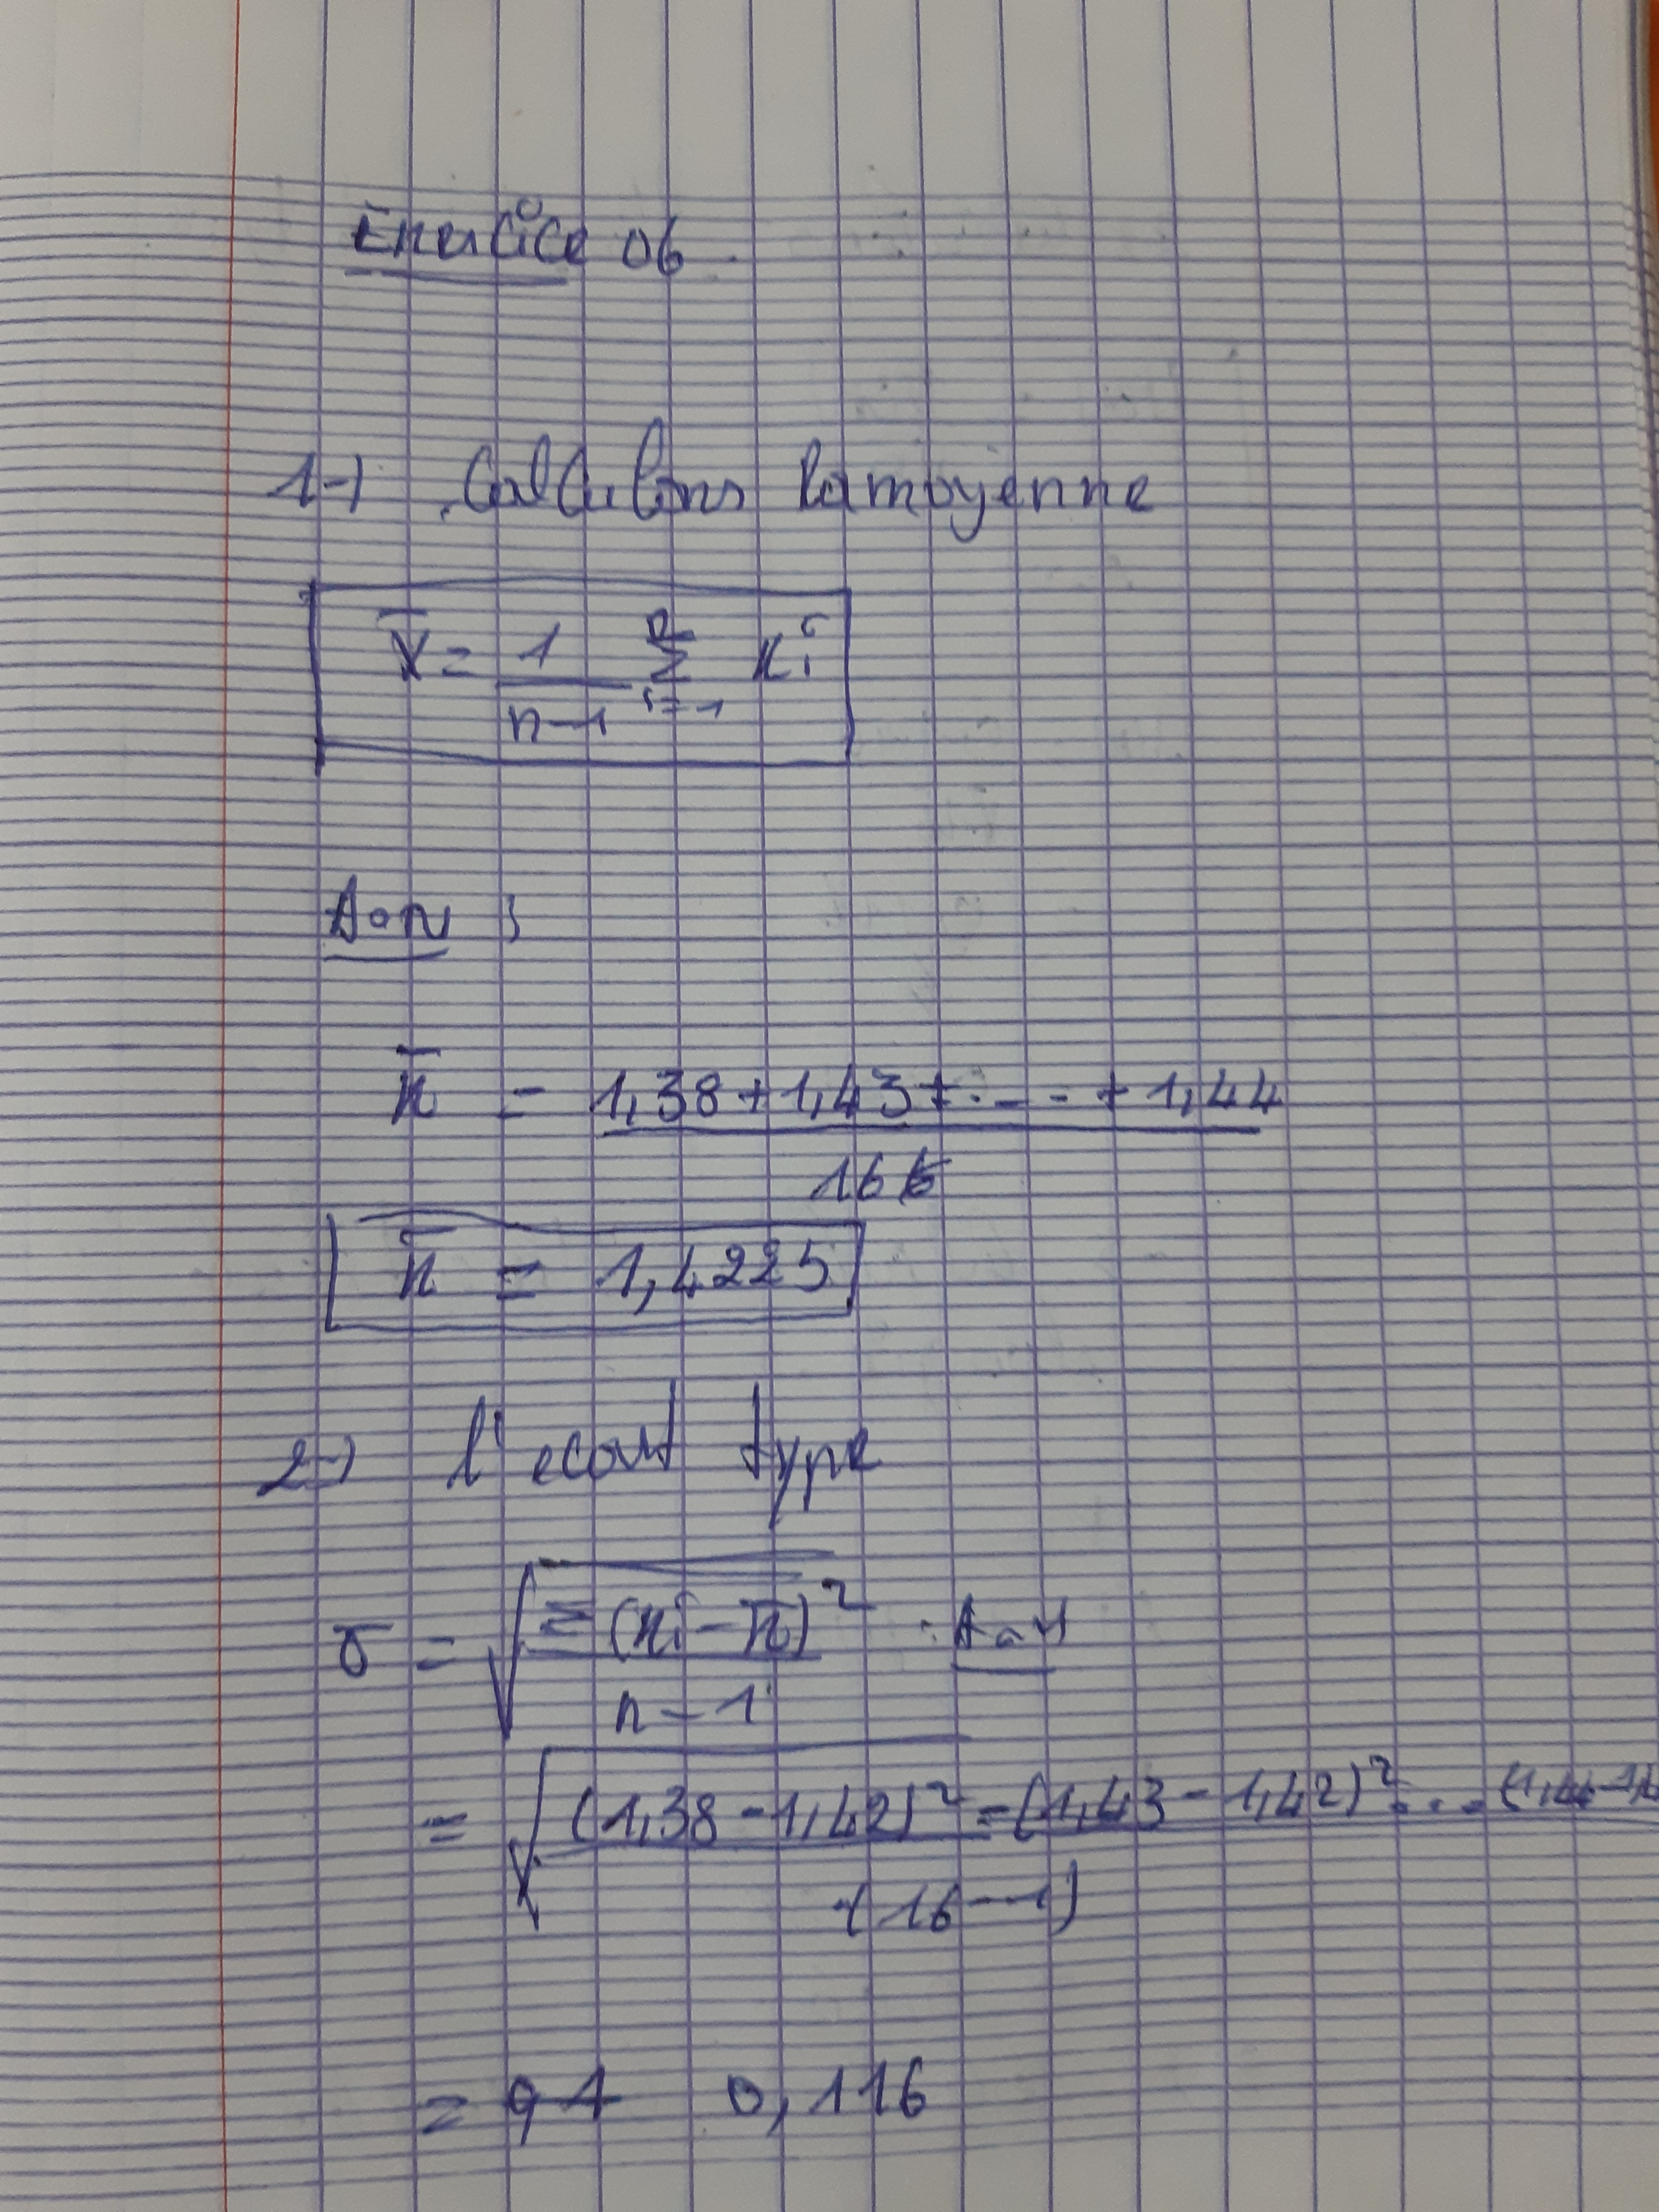 Exercice 06
1-) Calculons la moyenne
X̄ = 1/(n-1) Σ(i=1, n) xi
A.N :
x̄ = (1,38+1,43+...+1,44)/16
x̄ = 1,4225
2-) l'ecart type
σ = √(Σ(xi-x̄)²/(n-1)) A.N
= √((1,38-1,42)²-(1,43-1,42)²...(1,44-1,4/(16-1))
= 0,116